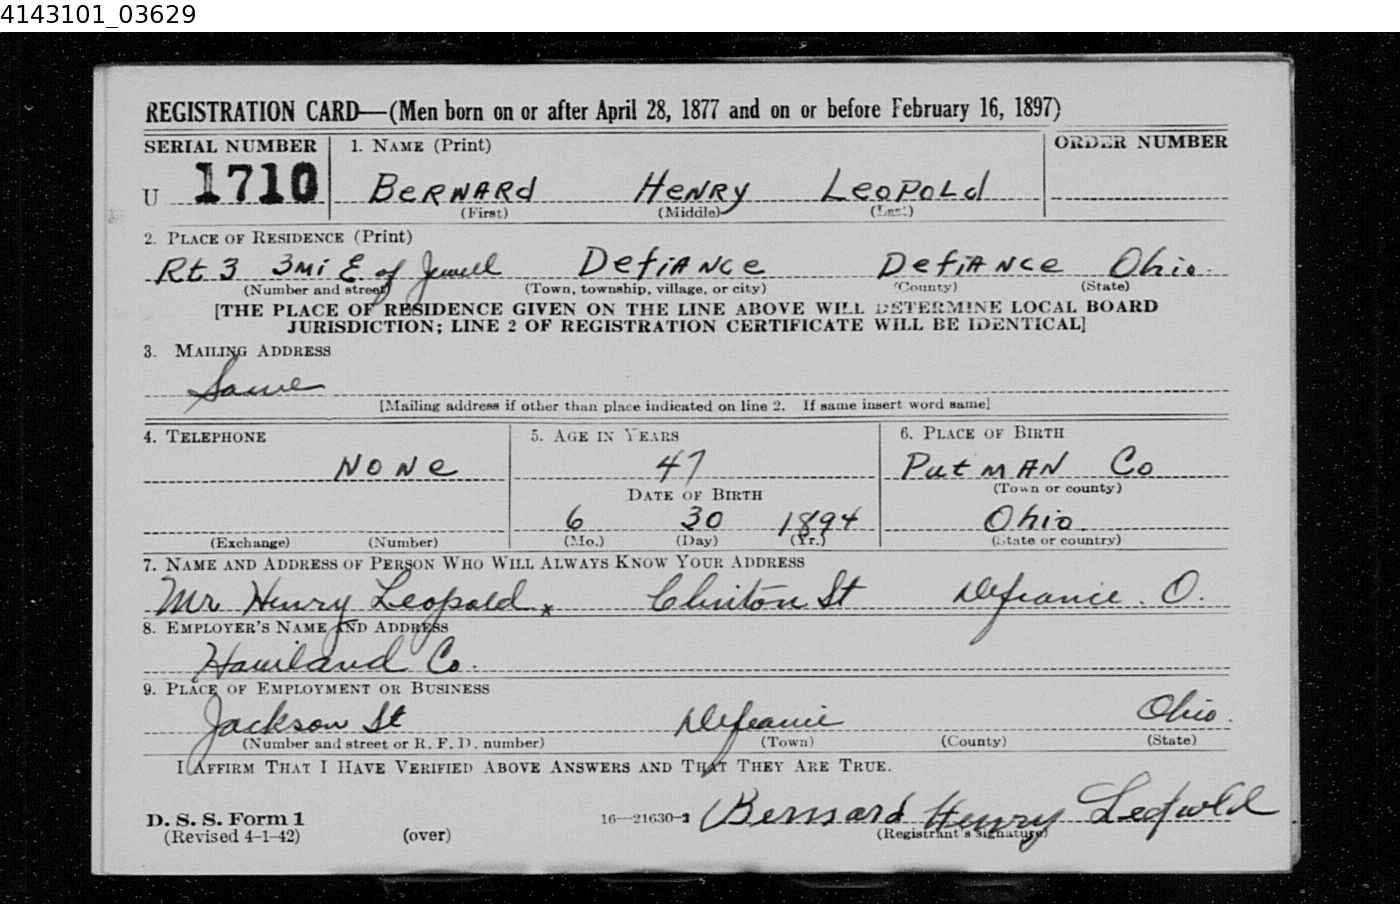 4143101_03629
REGISTRATION CARD—(Men born on or after April 28, 1877 and on or before February 16, 1897)
SERIAL NUMBER 1. NAME (Print) ORDER NUMBER
U 1710 BERNARD HENRY LEOPOLD
(First) (Middle) (Last)
2. PLACE OF RESIDENCE (Print)
Rt 3 3mi E of Jewell DefiANCe DefiANCe Ohio.
(Number and street) (Town, township, village, or city) (County) (State)
[THE PLACE OF RESIDENCE GIVEN ON THE LINE ABOVE WILL DETERMINE LOCAL BOARD
JURISDICTION; LINE 2 OF REGISTRATION CERTIFICATE WILL BE IDENTICAL]
3. MAILING ADDRESS
Same
[Mailing address if other than place indicated on line 2. If same insert word same]
4. TELEPHONE 5. AGE IN YEARS 6. PLACE OF BIRTH
NONe 47 PutmAN Co
(Town or county)
DATE OF BIRTH
6 30 1894 Ohio
(Exchange) (Number) (Mo.) (Day) (Yr.) (State or country)
7. NAME AND ADDRESS OF PERSON WHO WILL ALWAYS KNOW YOUR ADDRESS
Mr Henry Leopold, Clinton St Defiance. O.
8. EMPLOYER'S NAME AND ADDRESS
Haviland Co.
9. PLACE OF EMPLOYMENT OR BUSINESS
Jackson St Defiance Ohio.
(Number and street or R. F. D. number) (Town) (County) (State)
I AFFIRM THAT I HAVE VERIFIED ABOVE ANSWERS AND THAT THEY ARE TRUE.
D. S. S. Form 1 16—21630-2 Bernard Henry Leopold
(Revised 4-1-42) (over) (Registrant's signature)